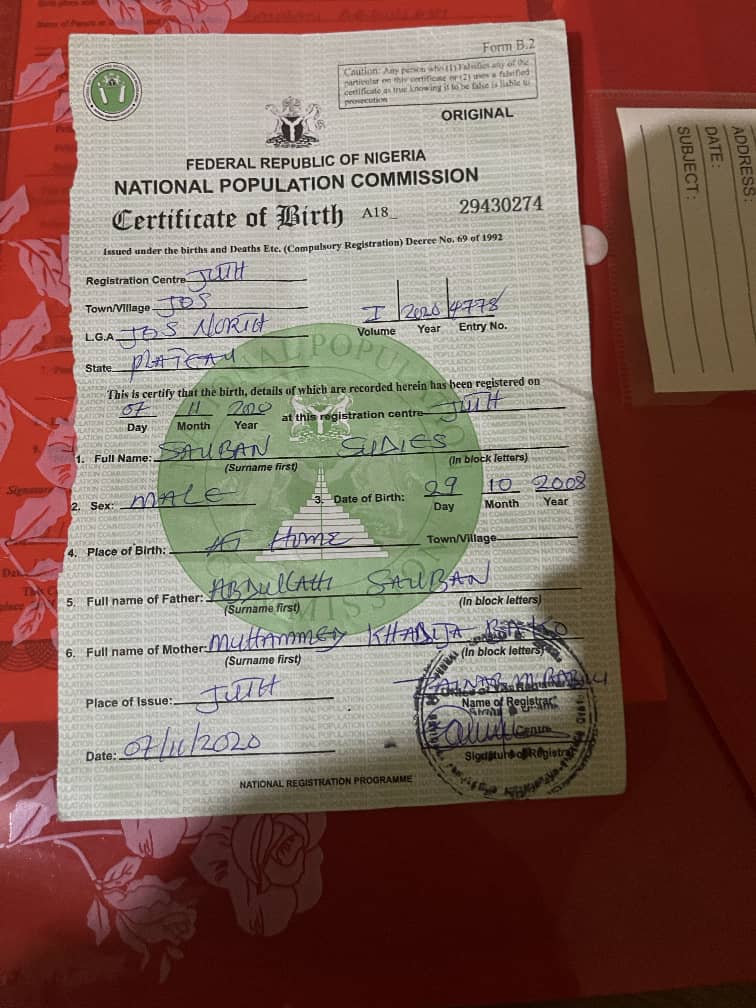 Form B.2
Caution: Any person who (1) Falsifies any of the
particular on this certificate or (2) uses a falsified
certificate as true knowing it to be false is liable to
prosecution
ORIGINAL
FEDERAL REPUBLIC OF NIGERIA
NATIONAL POPULATION COMMISSION
Certificate of Birth A18_ 29430274
Issued under the births and Deaths Etc. (Compulsory Registration) Decree No. 69 of 1992
Registration Centre JUTH
Town/Village JOS
I 2020 4778
Volume Year Entry No.
L.G.A JOS NORTH
State PLATEAU
This is certify that the birth, details of which are recorded herein has been registered on
07 11 2020 at this registration centre JUTH
Day Month Year
1. Full Name: SAUBAN SUDIES
(Surname first) (In block letters)
2. Sex: MALE 3. Date of Birth: 29 10 2008
Day Month Year
4. Place of Birth: AT HOME Town/Village
5. Full name of Father: ABDULLAHI SAUBAN
(Surname first) (In block letters)
6. Full name of Mother: MUHAMMED KHADIJA
(Surname first) (In block letters)
Place of Issue: JUTH
Name of Registrar
Date: 07/11/2020
Signature of Registrar
NATIONAL REGISTRATION PROGRAMME
ADDRESS:
DATE:
SUBJECT: